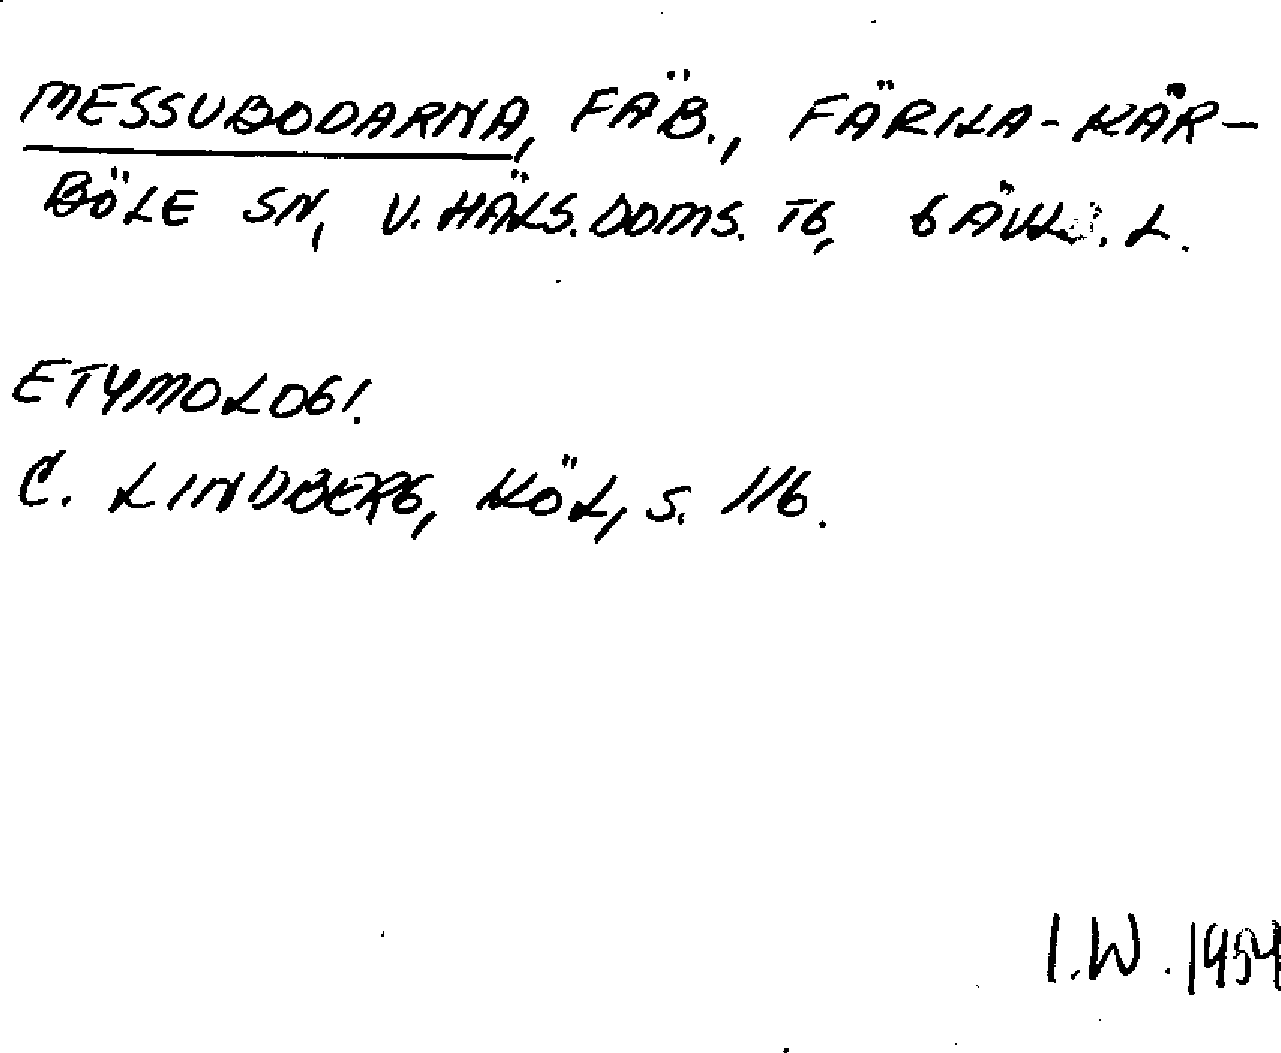 MESSUBODARNA, FÄB., FÄRILA-KÅR-
BÖLE SN, V. HÄLS. DOMS. TG, GÄVLEB. L.
ETYMOLOGI.
C. LINDBERG, KÖL, S. 116.
I.W. 1954